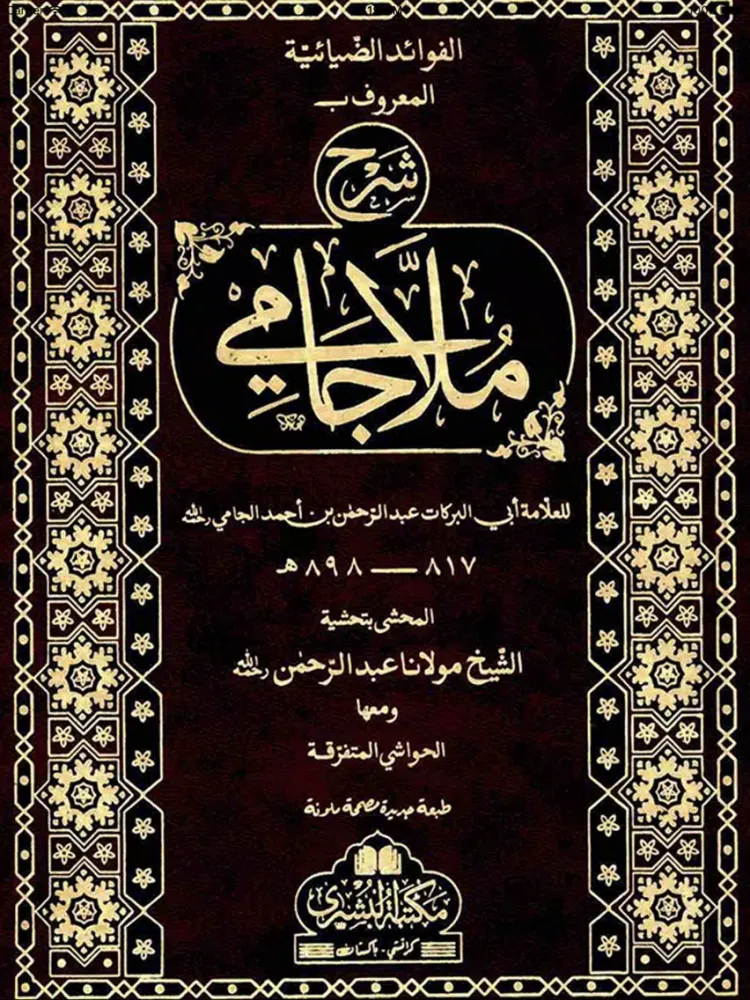 الفوائد الضّيائيّة
المعروف بـ
شرح
مُلّا جَامِي
للعلّامة أبي البركات عبد الرّحمٰن بن أحمد الجامي رحمه الله
٨١٧ — ٨٩٨ هـ
المحشى بتحشية
الشّيخ مولانا عبد الرّحمٰن رحمه الله
ومعها
الحواشي المتفرّقة
طبعة جديدة مصححة ملونة
مكتبة البشرى
كراتشي - باكستان